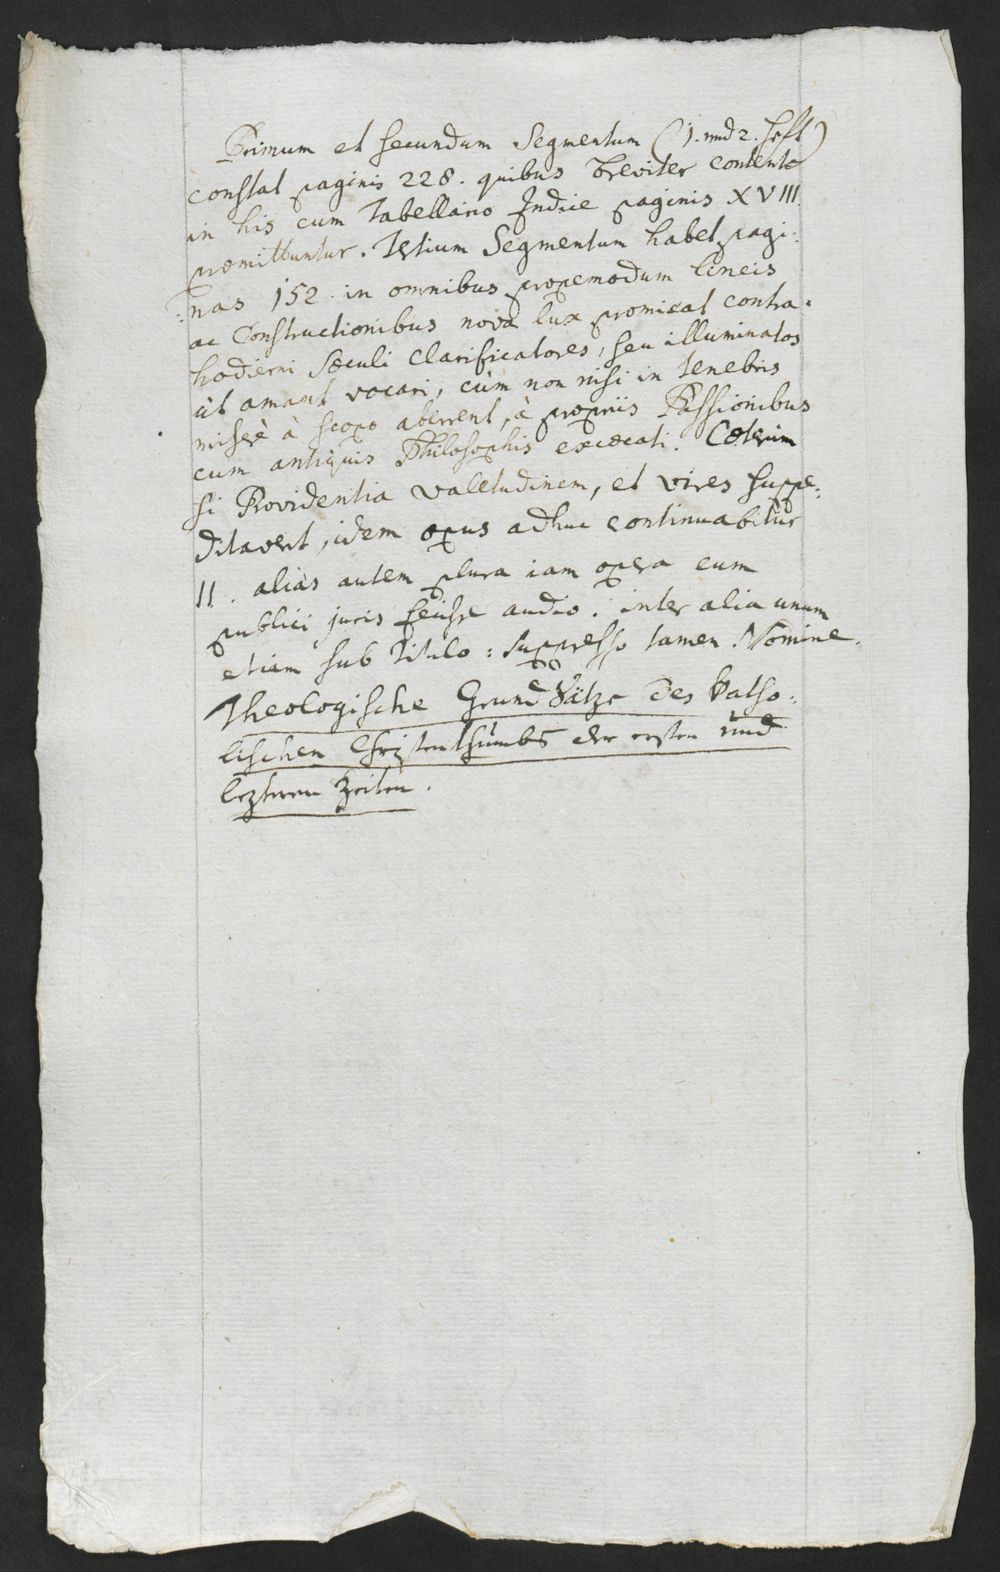 Primum et secundum Segmentum (1. und 2. Heft)
constat paginis 228. quibus breviter contenta
in his cum Tabellario Indice paginis XVIII.
præmittuntur. Tertium Segmentum habet pagi:
:nas 152. in omnibus propemodum lineis
ac Constructionibus nova lux promicat contra
hodierni Sæculi Clarificatores, seu illuminatos
ut amant vocari, cùm non nisi in tenebris
miserè à scopo aberrent, à propriis Passionibus
cum antiquis Philosophis excæcati. Cæterùm
si Providentia valetudinem, et vires suppe:
ditaverit, idem opus adhuc continuabitur
11. alias autem plura iam opera eum
publici juris fecisse audio. inter alia unum
etiam sub Titulo: suppresso tamen Nomine.
Theologische GrundSätze des Katho:
lischen Christenthumbs der ersten und
lezteren Zeiten.